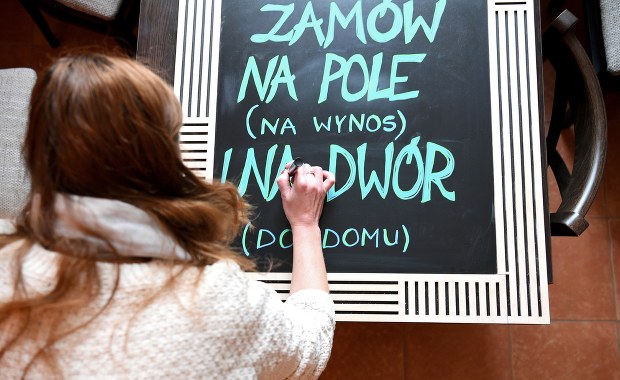 ZAMÓW
NA POLE
(NA WYNOS)
I NA DWÓR
(DO DOMU)